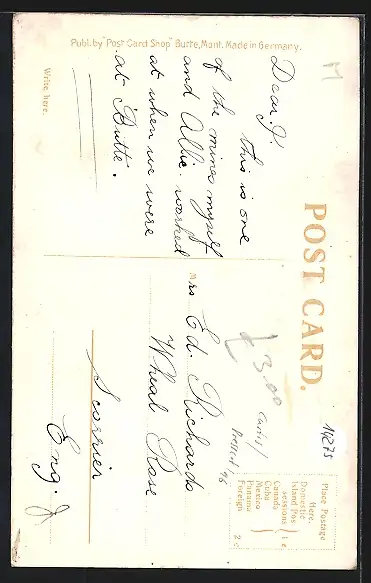 Publ. by "Post Card Shop" Butte, Mont. Made in Germany.
Write here.
POST CARD.
Place Postage
Here.
Domestic
Island Pos-
sessions
Canada
Cuba
Mexico
Panama
Foreign
1 c
2 c
14275
M
Dear J.
This is one
of the mines myself
and Allie worked
at when we were
at Butte.
£ 3.00
Mrs Ed. Richards
Wheal Rose
Scorrier
Eng.